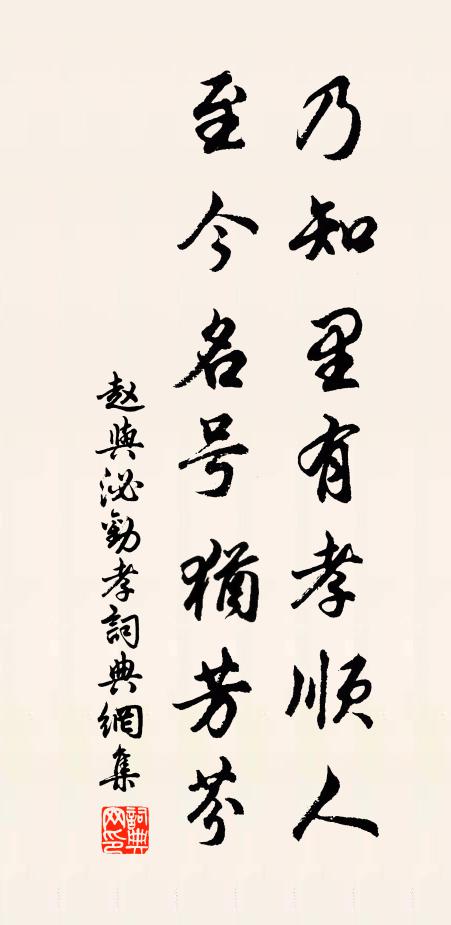 乃知里有孝顺人
至今名号犹芳芬
赵與泌勸孝詞典網集
詞典网印